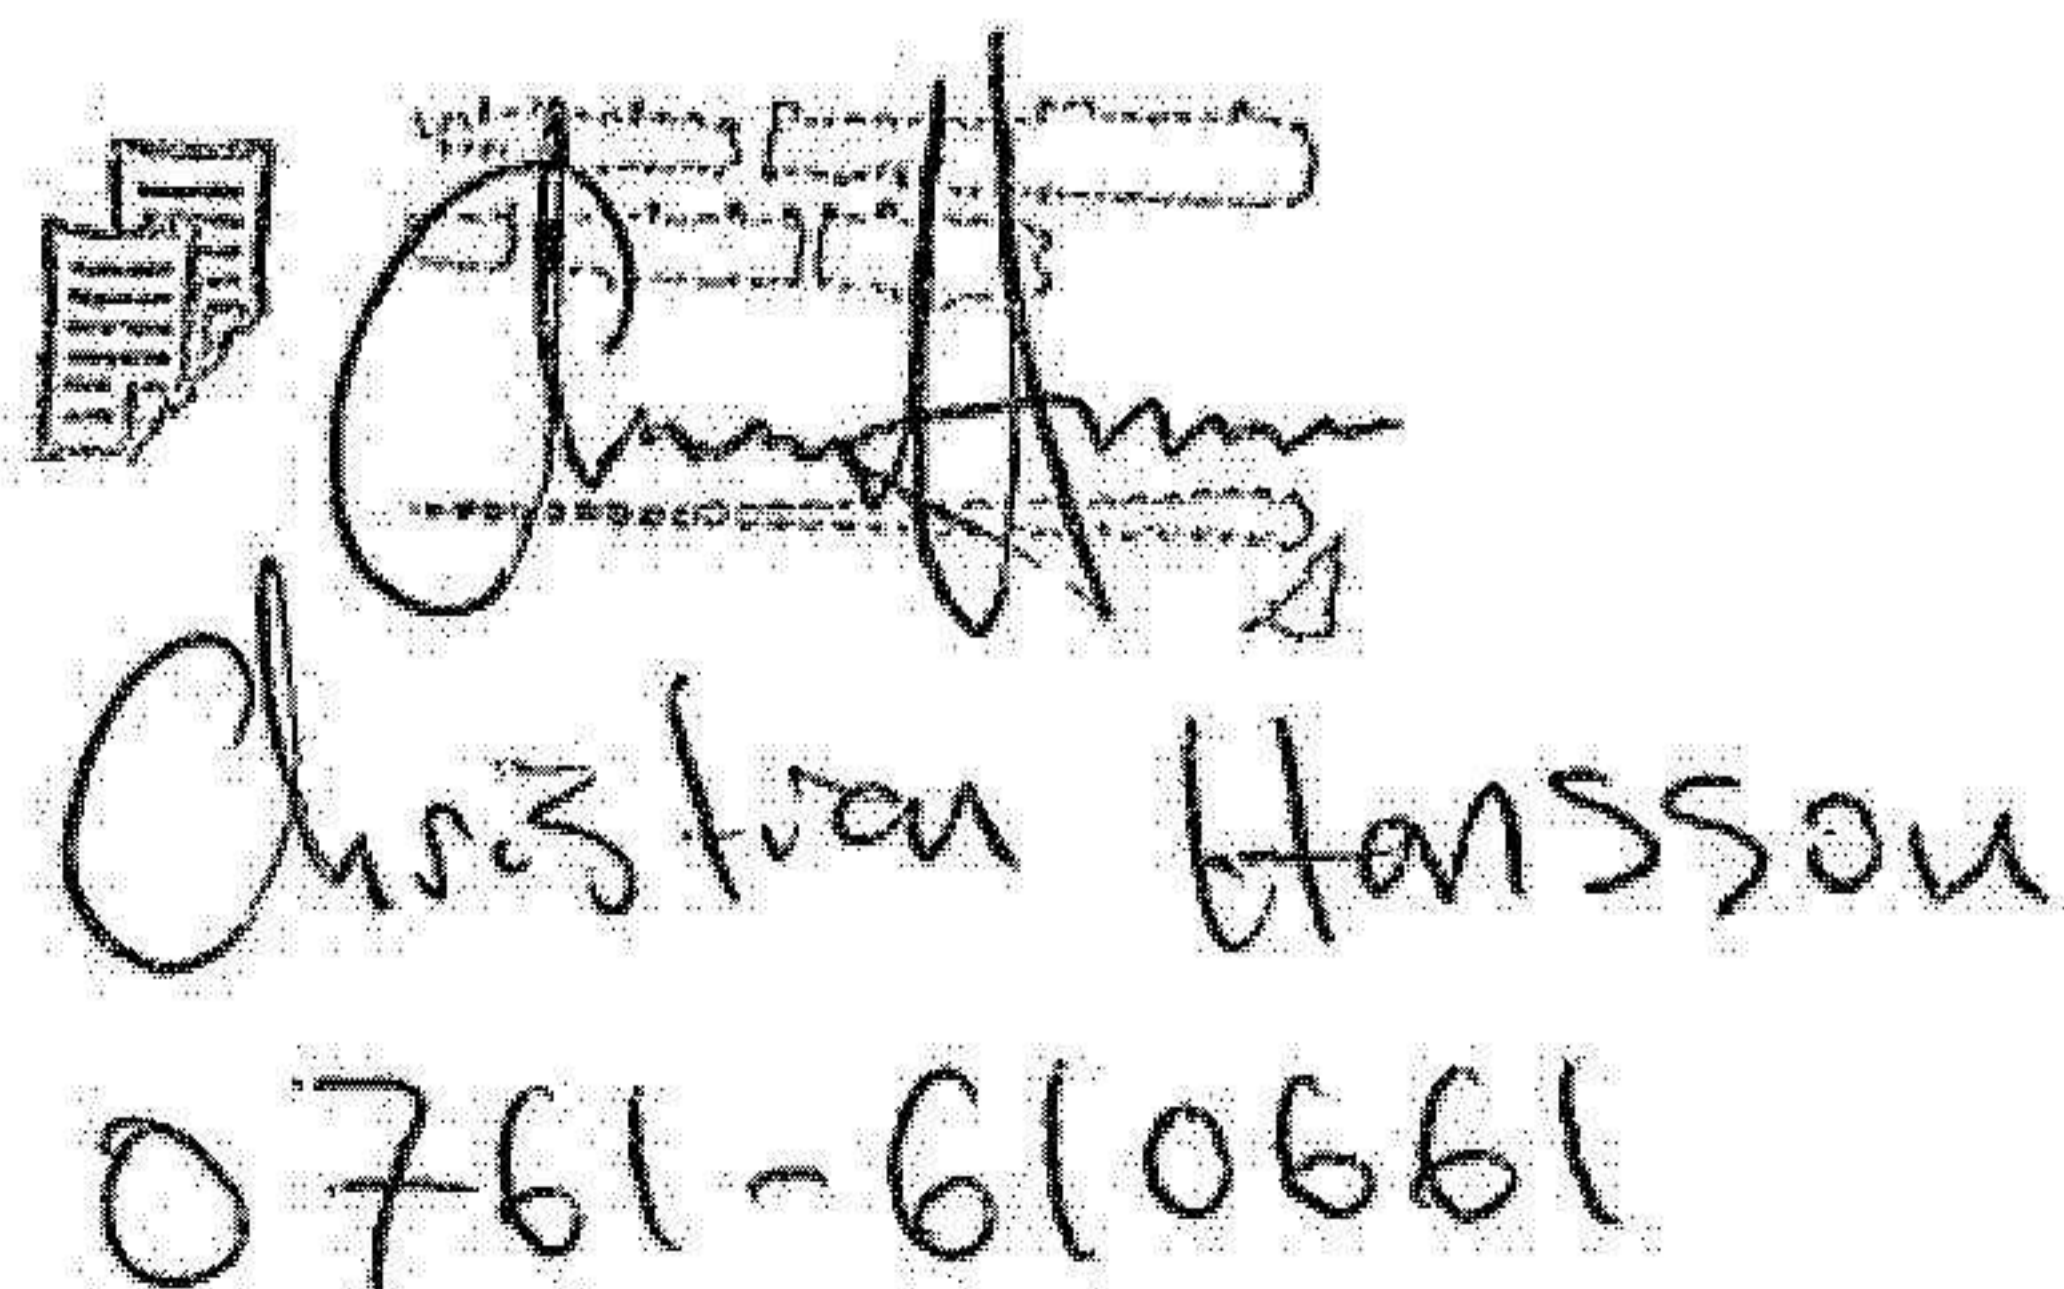 Christian Hansson
0761-610661